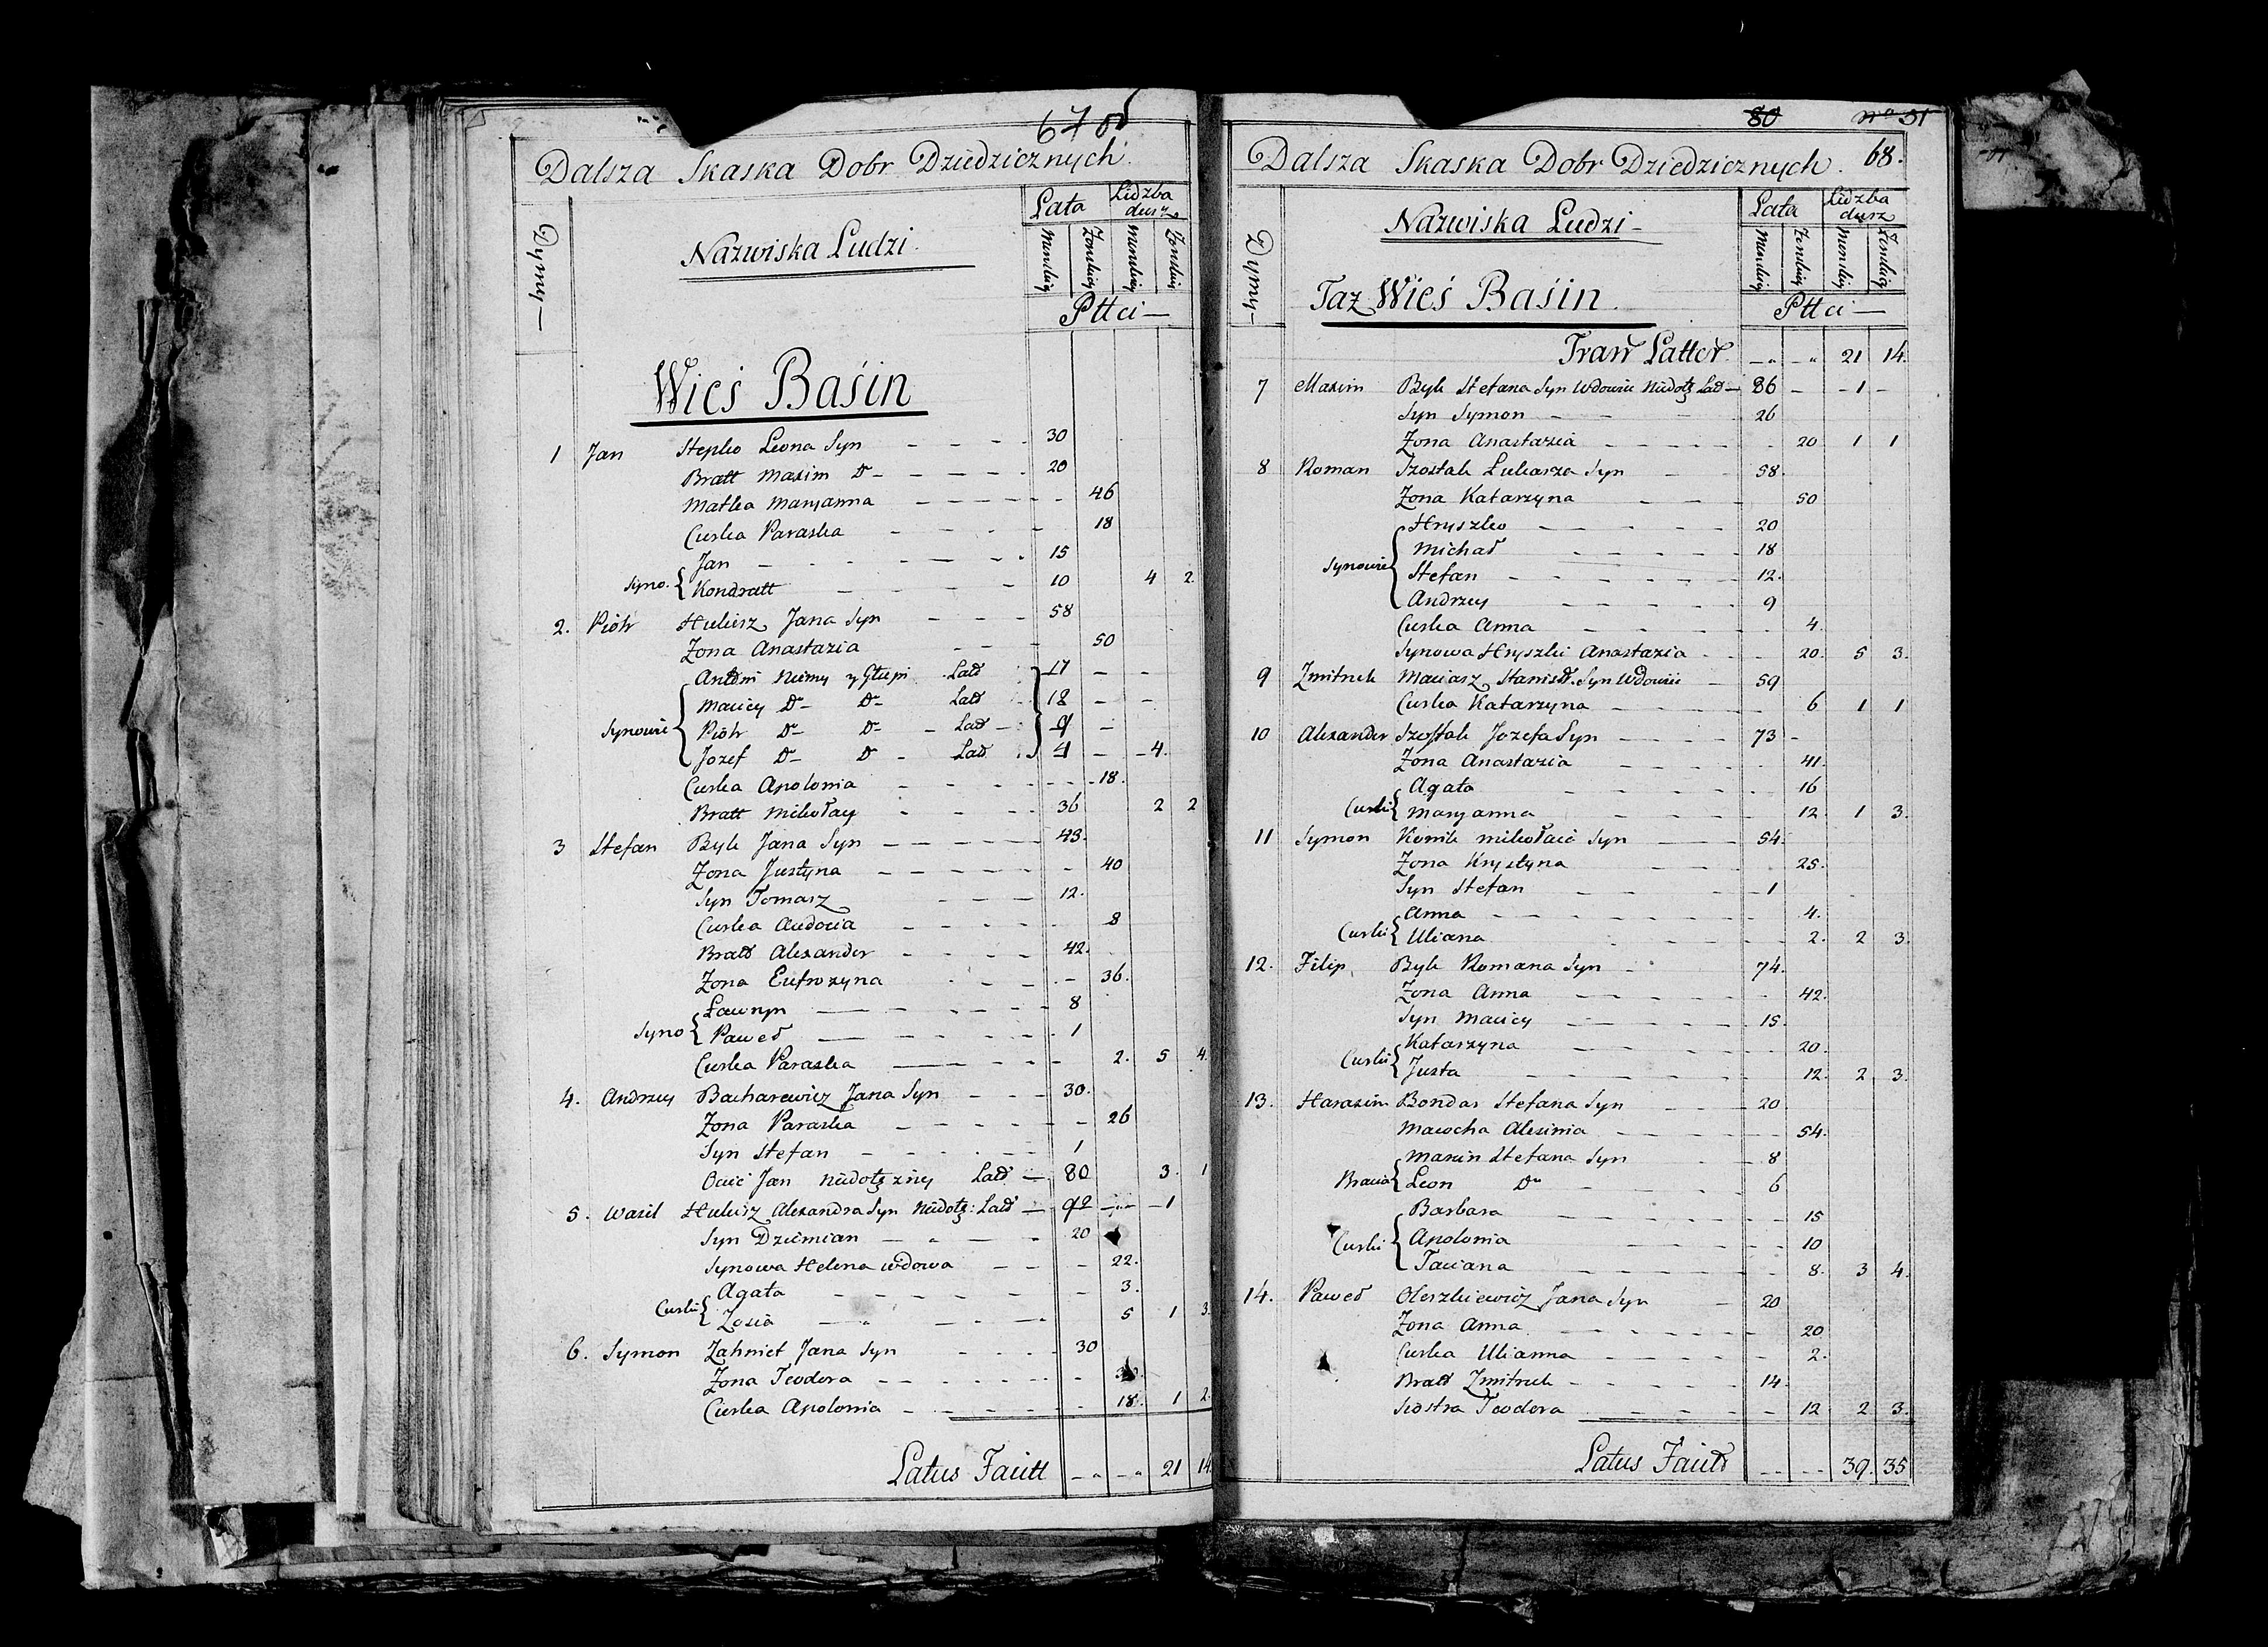 67 od
Dalsza Skaska Dobr Dziedzicznych.
Dymy —
Nazwiska Ludzi.
Lata
Lidzba dusz
Menskiey
Zenskiey
Menskiey
Zenskiey
Płłci —
Wieś Basin
1 Jan Stepko Leona Syn 30
Bratt Maxim D° 20
Matka Maryanna 46
Curka Paraska 18
Jan 15
Syno. Kondratt 10 4 2.
2. Piotr Hukisz Jana Syn 58
Zona Anastazia 50
Antoni Niemy y Głupi Lad 17
Maciey D° D° Lad 18
Synowie Piotr D° D° Lad 9
Jozef D° D° Lad 4 4.
Curka Apolonia 18.
Bratt Mikołay 36 2 2
3 Stefan Byk Jana Syn 43.
Zona Justyna 40
Syn Tomasz 12.
Curka Audocia 8
Bratt Alexander 42.
Zona Eufrozyna 36.
Ławryn 8
Syno Paweł 1
Curka Paraska 2. 5 4.
4. Andrzey Bacharewicz Jana Syn 30.
Zona Paraska 26
Syn Stefan 1
Ociec Jan Niedołężny Lad 80 3. 1
5. Wasil Hukisz Alexandra Syn Niedołę: Lad 92 1
Syn Dziemian 20
Synowa Helena wdowa 22.
Agata 3.
Curki Zosia 5 1 3.
6. Symon Zahniet Jana Syn 30
Zona Teodora
Curka Apolonia 18. 1 2.
Latus Facitt 21 14.
80 N° 31
Dalsza Skaska Dobr Dziedzicznych. 68.
Dymy —
Nazwiska Ludzi —
Lata
Lidzba dusz
Menskiey
Zenskiey
Menskiey
Zenskiey
Płłci —
Taz Wieś Basin.
Tran Latter 21 14.
7 Maxim Byk Stefana Syn Wdowiec Niedołę Lad 86 1
Syn Symon 26
Zona Anastazia 20 1 1
8 Roman Szostak Lukasza Syn 58.
Zona Katarzyna 50
Hryszko 20
Michał 18
Synowie Stefan 12.
Andrzey 9
Curka Anna 4.
Synowa Hryszki Anastazia 20. 5 3.
9 Zmitruk Maciasz Stanisł. Syn Wdowiec 59
Curka Katarzyna 6 1 1
10 Alexander Szostak Jozefa Syn 73
Zona Anastazia 41.
Agata 16
Curki Maryanna 12. 1 3.
11 Symon Komik Mikołaia Syn 54.
Zona Krystyna 25.
Syn Stefan 1
Anna 4.
Curki Uliana 2. 2 3.
12. Filip Byk Romana Syn 74.
Zona Anna 42.
Syn Maciey 15.
Katarzyna 20.
Curki Justa 12. 2 3.
13. Harasim Bondar Stefana Syn 20
Macocha Alexinia 54.
Maxim Stefana Syn 8
Bracia Leon D° 6
Barbara 15
Curki Apolonia 10
Taciana 8. 3 4.
14. Paweł Oleszkiewicz Jana Syn 20
Zona Anna 20
Curka Ulianna 2.
Bratt Zmitruk 14.
Siostra Teodora 12 2 3.
Latus Facitt 39. 35